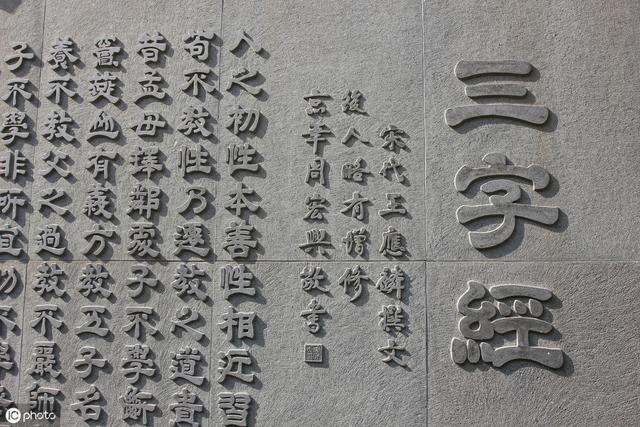 三字經
宋代王應麟撰文
後人略有增修
年周宏興敬書
人之初性本善性相近習
苟不教性乃遷教之道貴
昔孟母擇鄰處子不學斷
竇燕山有義方教五子名
養不教父之過教不嚴師
子不學非所宜幼不學
IC photo